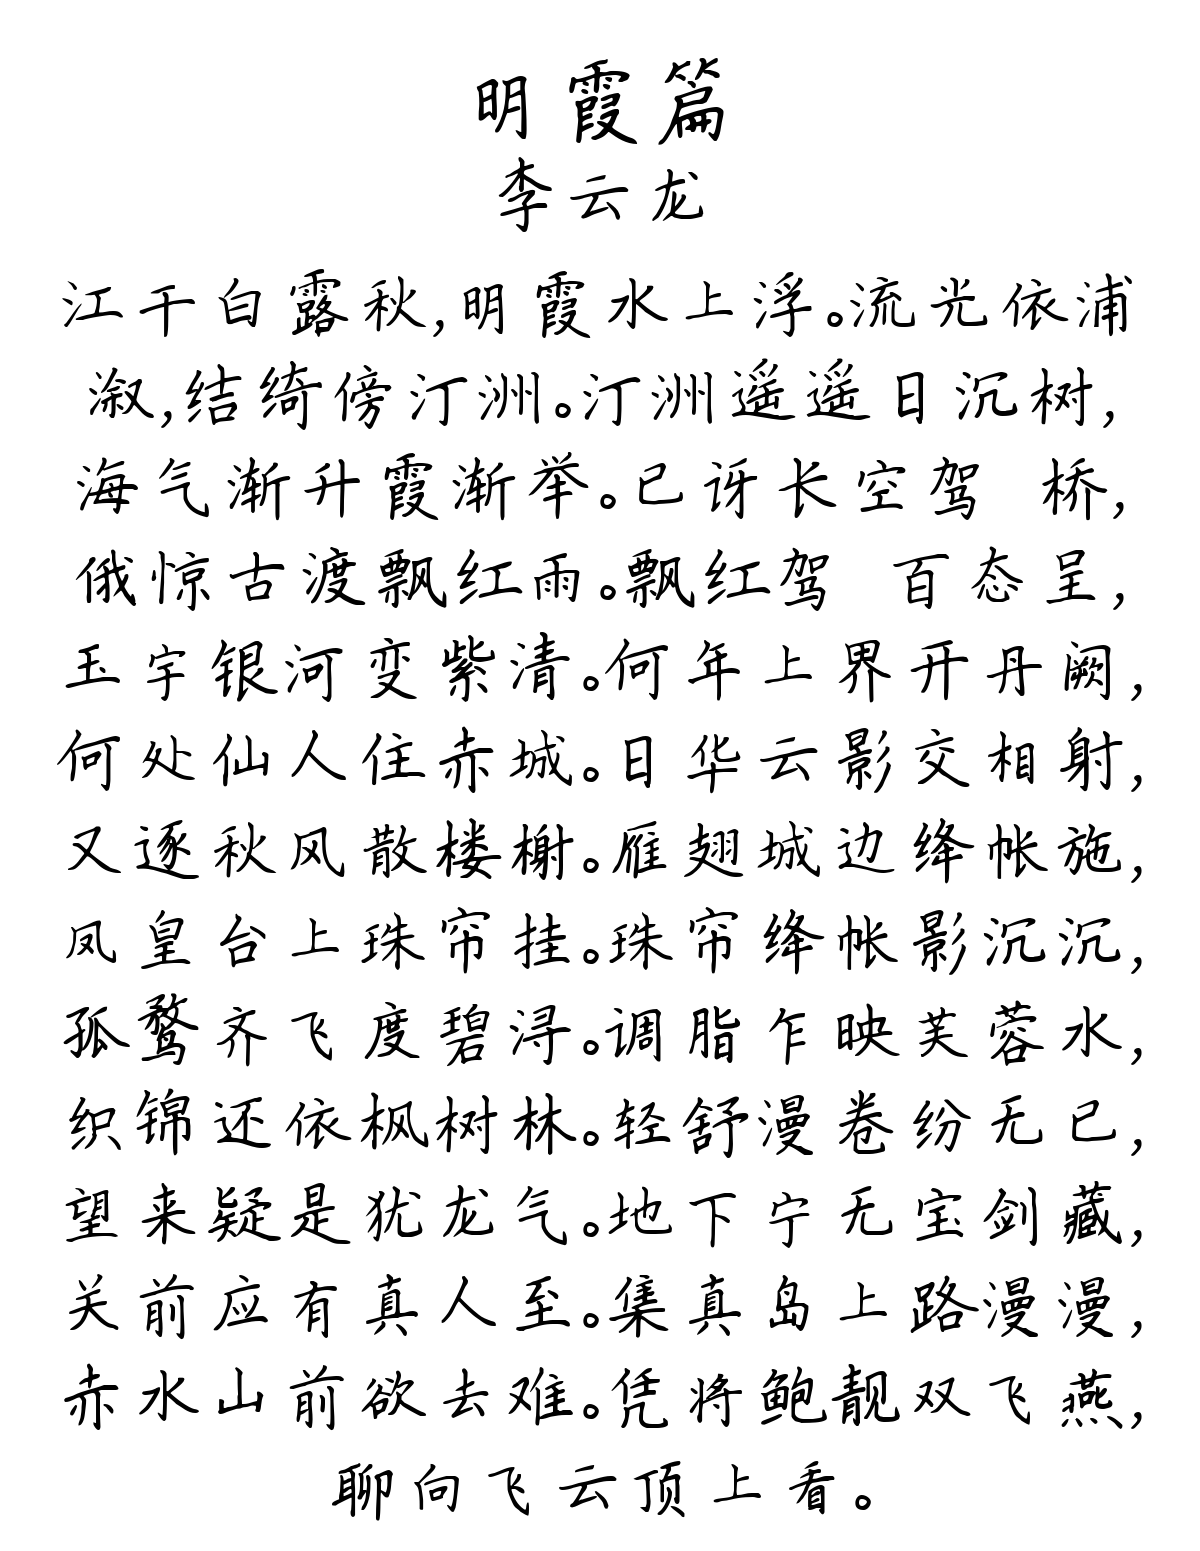 明霞篇
李云龙
江干白露秋,明霞水上浮。流光依浦
溆,结绮傍汀洲。汀洲遥遥日沉树,
海气渐升霞渐举。已讶长空驾 桥,
俄惊古渡飘红雨。飘红驾 百态呈,
玉宇银河变紫清。何年上界开丹阙,
何处仙人住赤城。日华云影交相射,
又逐秋风散楼榭。雁翅城边绛帐施,
凤皇台上珠帘挂。珠帘绛帐影沉沉,
孤鹜齐飞度碧浔。调脂乍映芙蓉水,
织锦还依枫树林。轻舒漫卷纷无已,
望来疑是犹龙气。地下宁无宝剑藏,
关前应有真人至。集真岛上路漫漫,
赤水山前欲去难。凭将鲍靓双飞燕,
聊向飞云顶上看。